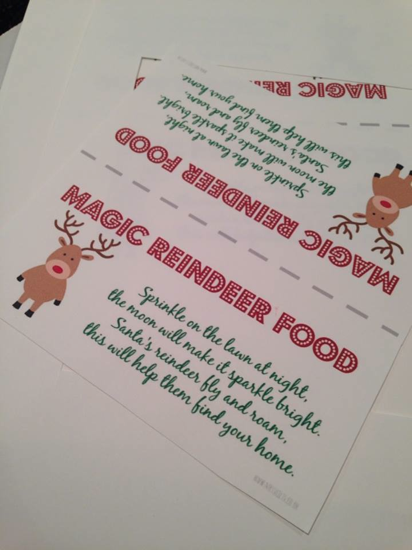 MAGIC REINDEER FOOD
Sprinkle on the lawn at night,
the moon will make it sparkle bright.
Santa's reindeer fly and roam,
this will help them find your home.
MAGIC REINDEER FOOD
Sprinkle on the lawn at night,
the moon will make it sparkle bright.
Santa's reindeer fly and roam,
this will help them find your home.
MAGIC RE